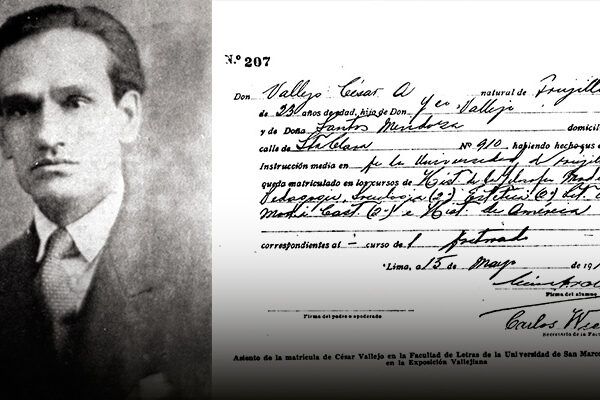 N.º 207
Don Vallejo César A natural de Trujillo
de 23 años de edad, hijo de Don Vallejo
y de Doña Santos Mendoza domicil
calle de Sta Clara Nº 910 habiendo hecho que e
Instrucción media en la Universidad de Trujill
queda matriculado en los cursos de Hist. de la Filosofía
Pedagogía, Sociología (2º) Estética (2º) Lit.
Cast. (2º) e Hist. de América
correspondientes al - curso de
Lima, a 15 de Mayo de 191
Firma del alumno
Carlos
Firma del padre o apoderado
Secretario de la Facu
Asiento de la matrícula de César Vallejo en la Facultad de Letras de la Universidad de San Marco
en la Exposición Vallejiana